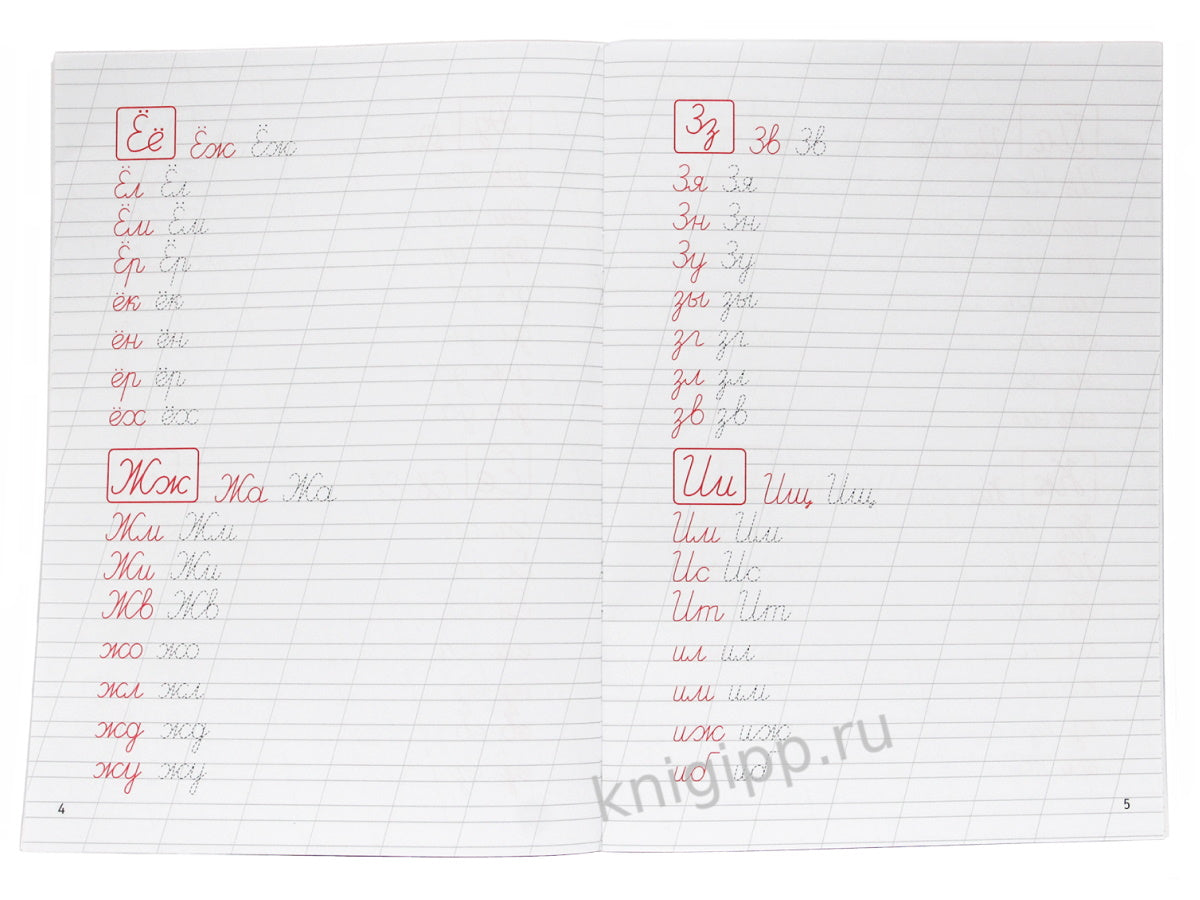 Ёё Ёж Ёж
Ёл Ёл
Ём Ём
Ёр Ёр
ёк ёк
ён ён
ёр ёр
ёх ёх
Жж Жа Жа
Жм Жм
Жи Жи
Жв Жв
жо жо
жл жл
жд жд
жу жу
4
Зз Зв Зв
Зя Зя
Зн Зн
Зу Зу
зы зы
зг зг
зл зл
зв зв
Ии Ищ Ищ
Им Им
Ис Ис
Ит Ит
ил ил
им им
иж иж
иб иб
5
knigipp.ru